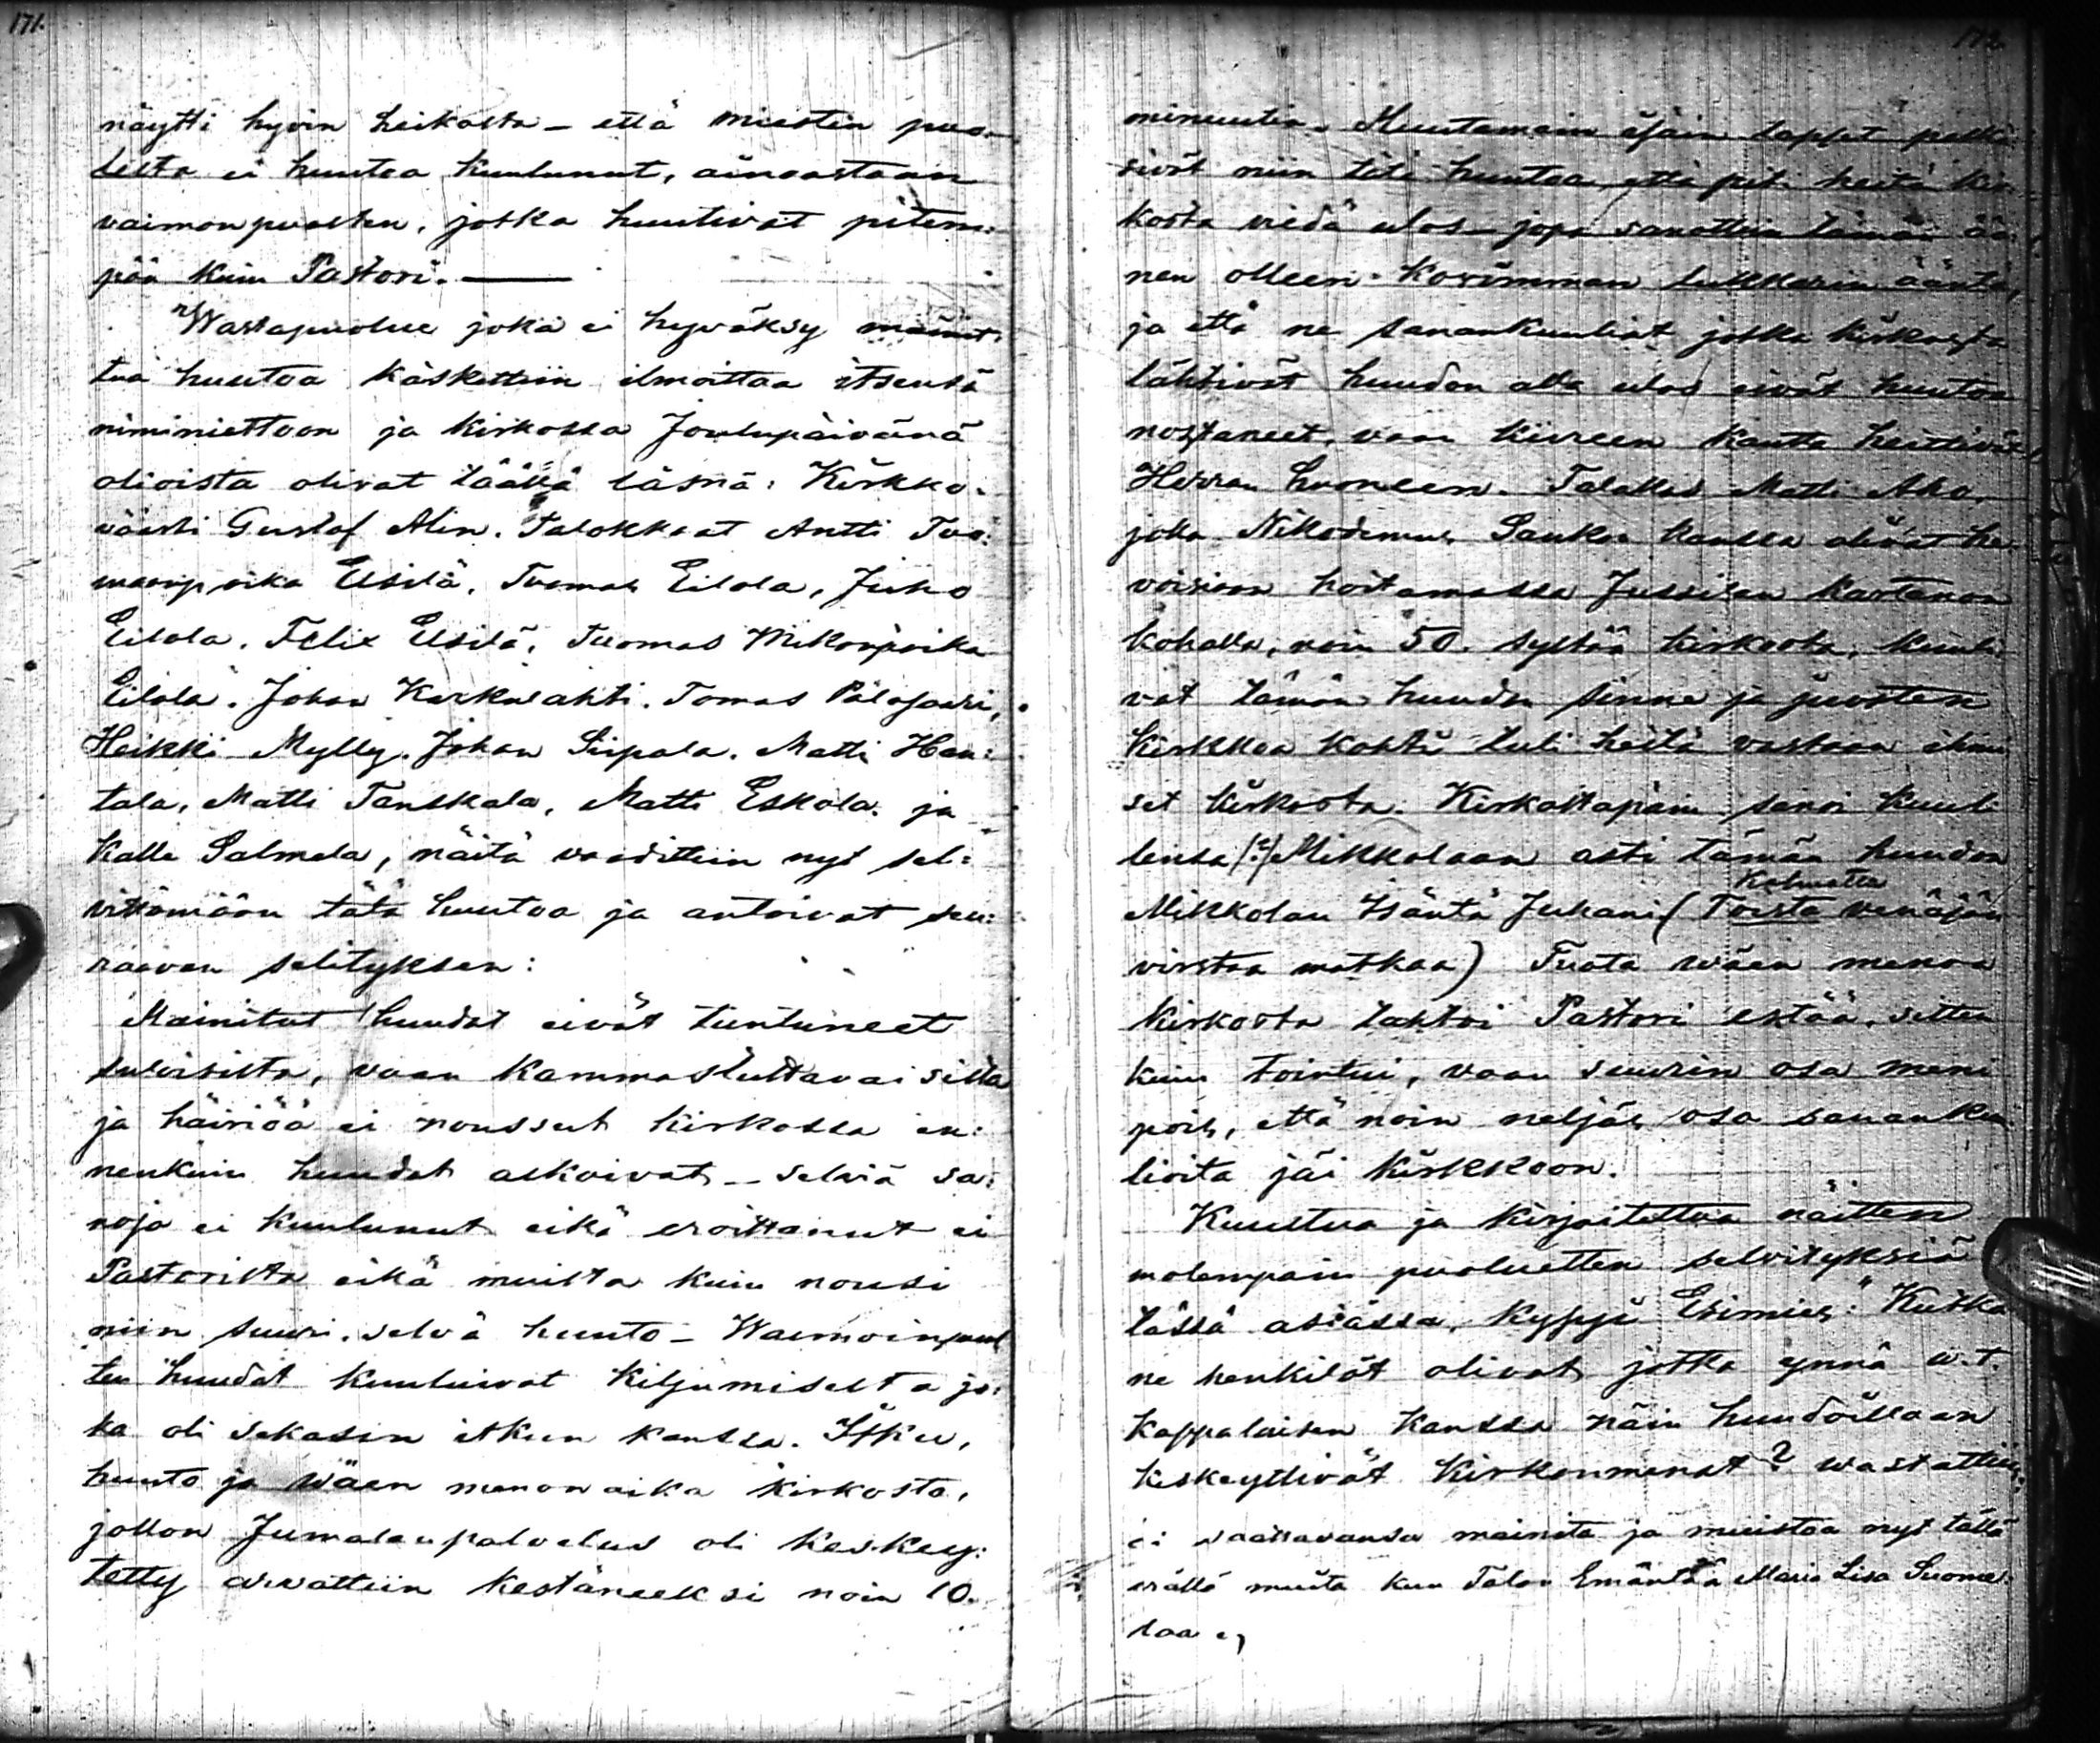 171.
näytti hyvin heikosta – että miesten puo-
lesta ei huutoa kuulunut, ainoastaan
vaimonpuolten, jotka huutivat pitem:
pän kuin Pastori. —
Wastapuolue joka ei hyväksy mainit:
tua huutoa käskettiin ilmoittaa itsensä
niminiettoon ja kirkossa Joulupäivänä
olioista olivat täällä läsnä: Kirkko:
väärti Gustaf Alin. Talokkaat Antti Tuo:
maanpoika Uusilä, Tuomas Eilola, Juho
Eilola. Felix Uusilä, Tuomas Mikonpoika
Eilola. Johan Karkulahti. Tomas Palojaari,
Heikki Mylly. Johan Siipala. Matti Han:
tala, Matti Tanskala, Matti Eskola. ja
Kalle Salmela, näitä vaadittiin nyt sel:
vittämään tätä huutoa ja antoivat seu:
raavan selityksen:
Mainitut huudot eivät tuntuneet
suloisilta, vaan kammastuttavaisilta
ja häiriöä ei noussut kirkossa en:
nenkuin huudot alkoivat – selviä sa:
noja ei kuulunut eikä eroittanut ei
Pastorilta eikä muilta kuin nousi
niin suuri, selvä huuto – Waimoinpuol
ten huudot kuuluivat kiljumiselta jo:
ka oli sekasin itkun kanssa. Itku,
huuto ja wäen menon aika kirkosta,
jollon Jumalanpalvelus oli keskey:
tetty arvattiin kestäneeksi noin 10.
172
minuutia. Muutamain äjäin lapset
sivät niin että huutoa että piti heitä kir
kosta viedä ulos – jopa sanottiin tämän ää:
nen olleen korimman lukkarin ääntä,
ja että ne sanankuuliat jotka kirkosta
lähtivät huudon alla ulos eivät huutoa
nostaneet, vaan kiireen kautta heittivät
Herran huoneen. Talokas Matti Aho,
joka Nikodemus Saukon kanssa olivat he
voisiaan hoitamassa Jussilan kartanon
kohalla, noin 50. syltää kirkosta, kuuli
vat tämän huudon sinne ja juosten
kirkkoa kohti tuli heitä vastaan ihmi
set kirkosta. Kirkoltapäin sanoi kuul
lensa (?) Mikkolaan asti tämän huudon
Mikkolan Isäntä Juhani (Toista Kolmatta venäjän
virstaa matkaa) Tuota wäen menoa
kirkosta tahtoi Pastori estää, sitten
kuin tointui, vaan suurin osa meni
pois, että noin neljäs osa sanankuu
lioita jäi kirkkoon.
Kuultua ja kirjoitettua näitten
molempain puoluetten selvityksiä
tässä asiassa, kysyi Esimies: "Kutka
ne henkilöt olivat, jotka ynnä w.t.
Kappalaisen kanssa näin huudoillaan
keskeyttivät kirkonmenot? wastattiin:
ei saattavansa mainita ja muistaa nyt tällä
erällä muita kun Talon Emäntää Maria Lisa Suome:
laa